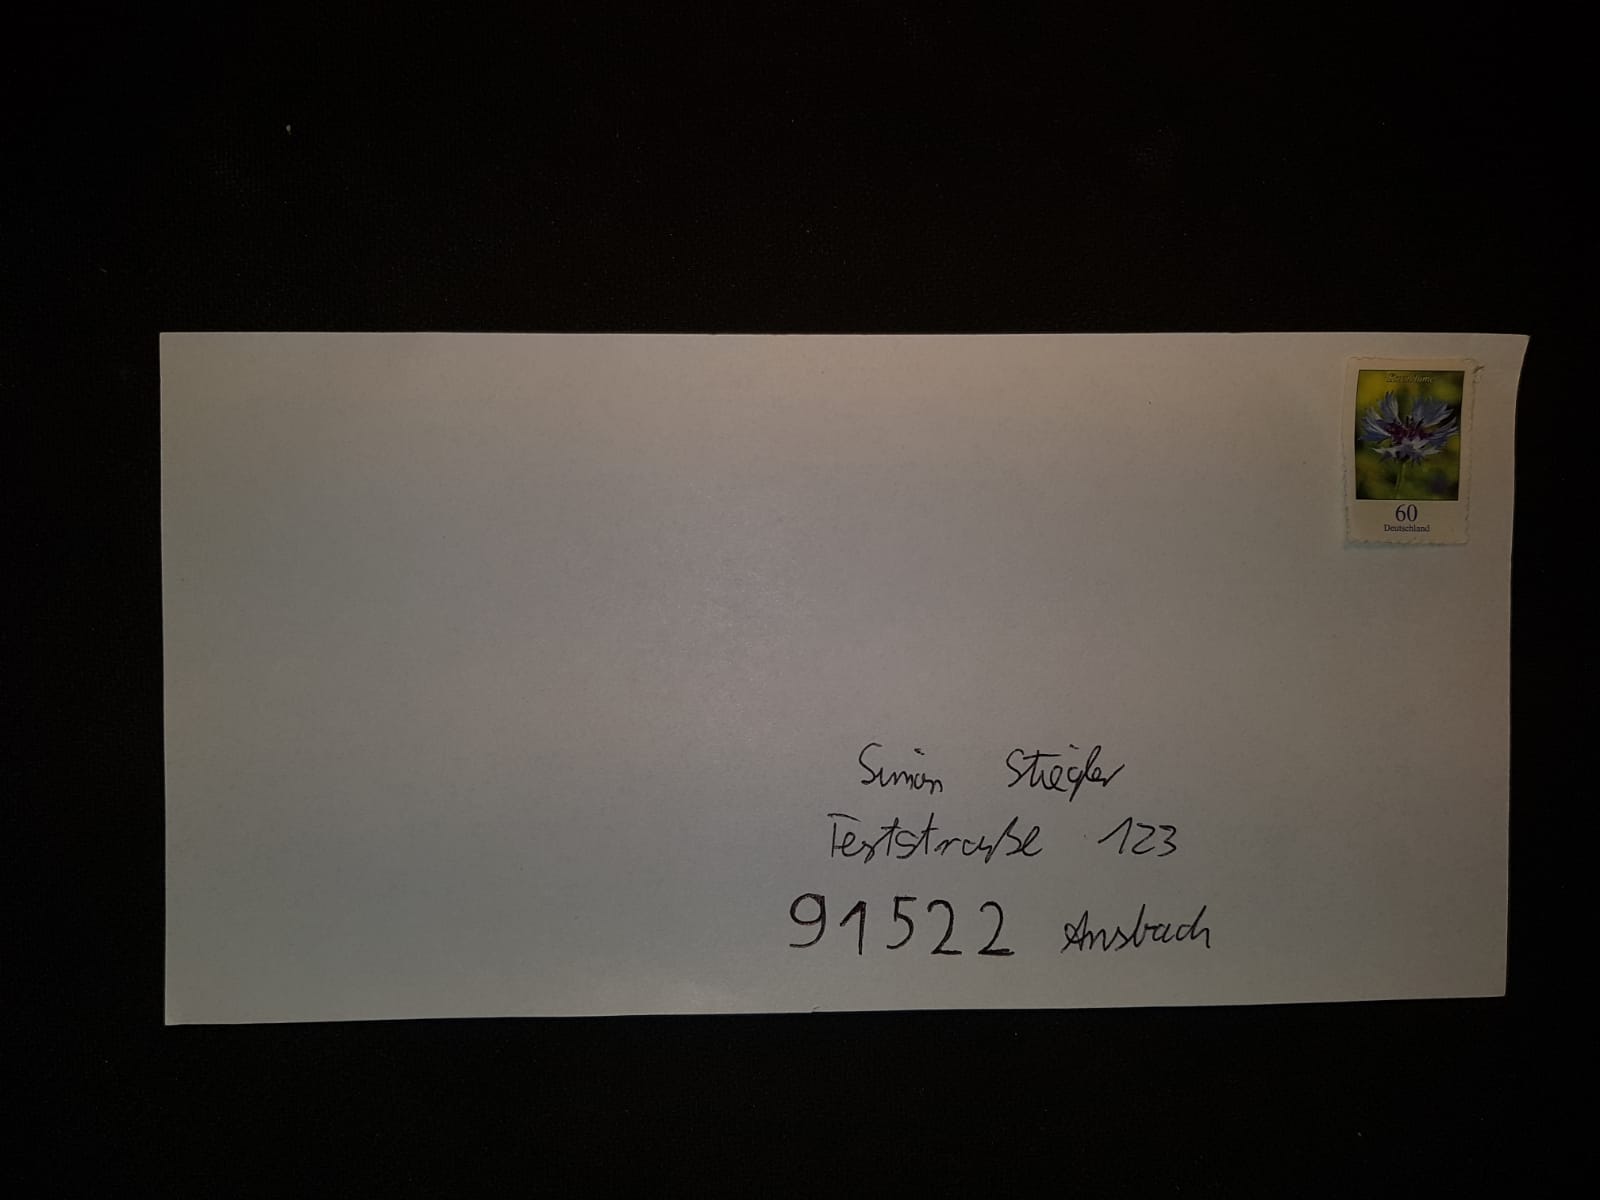 Kornblume
60
Deutschland
Simon Stiegler
Teststraße 123
91522 Ansbach